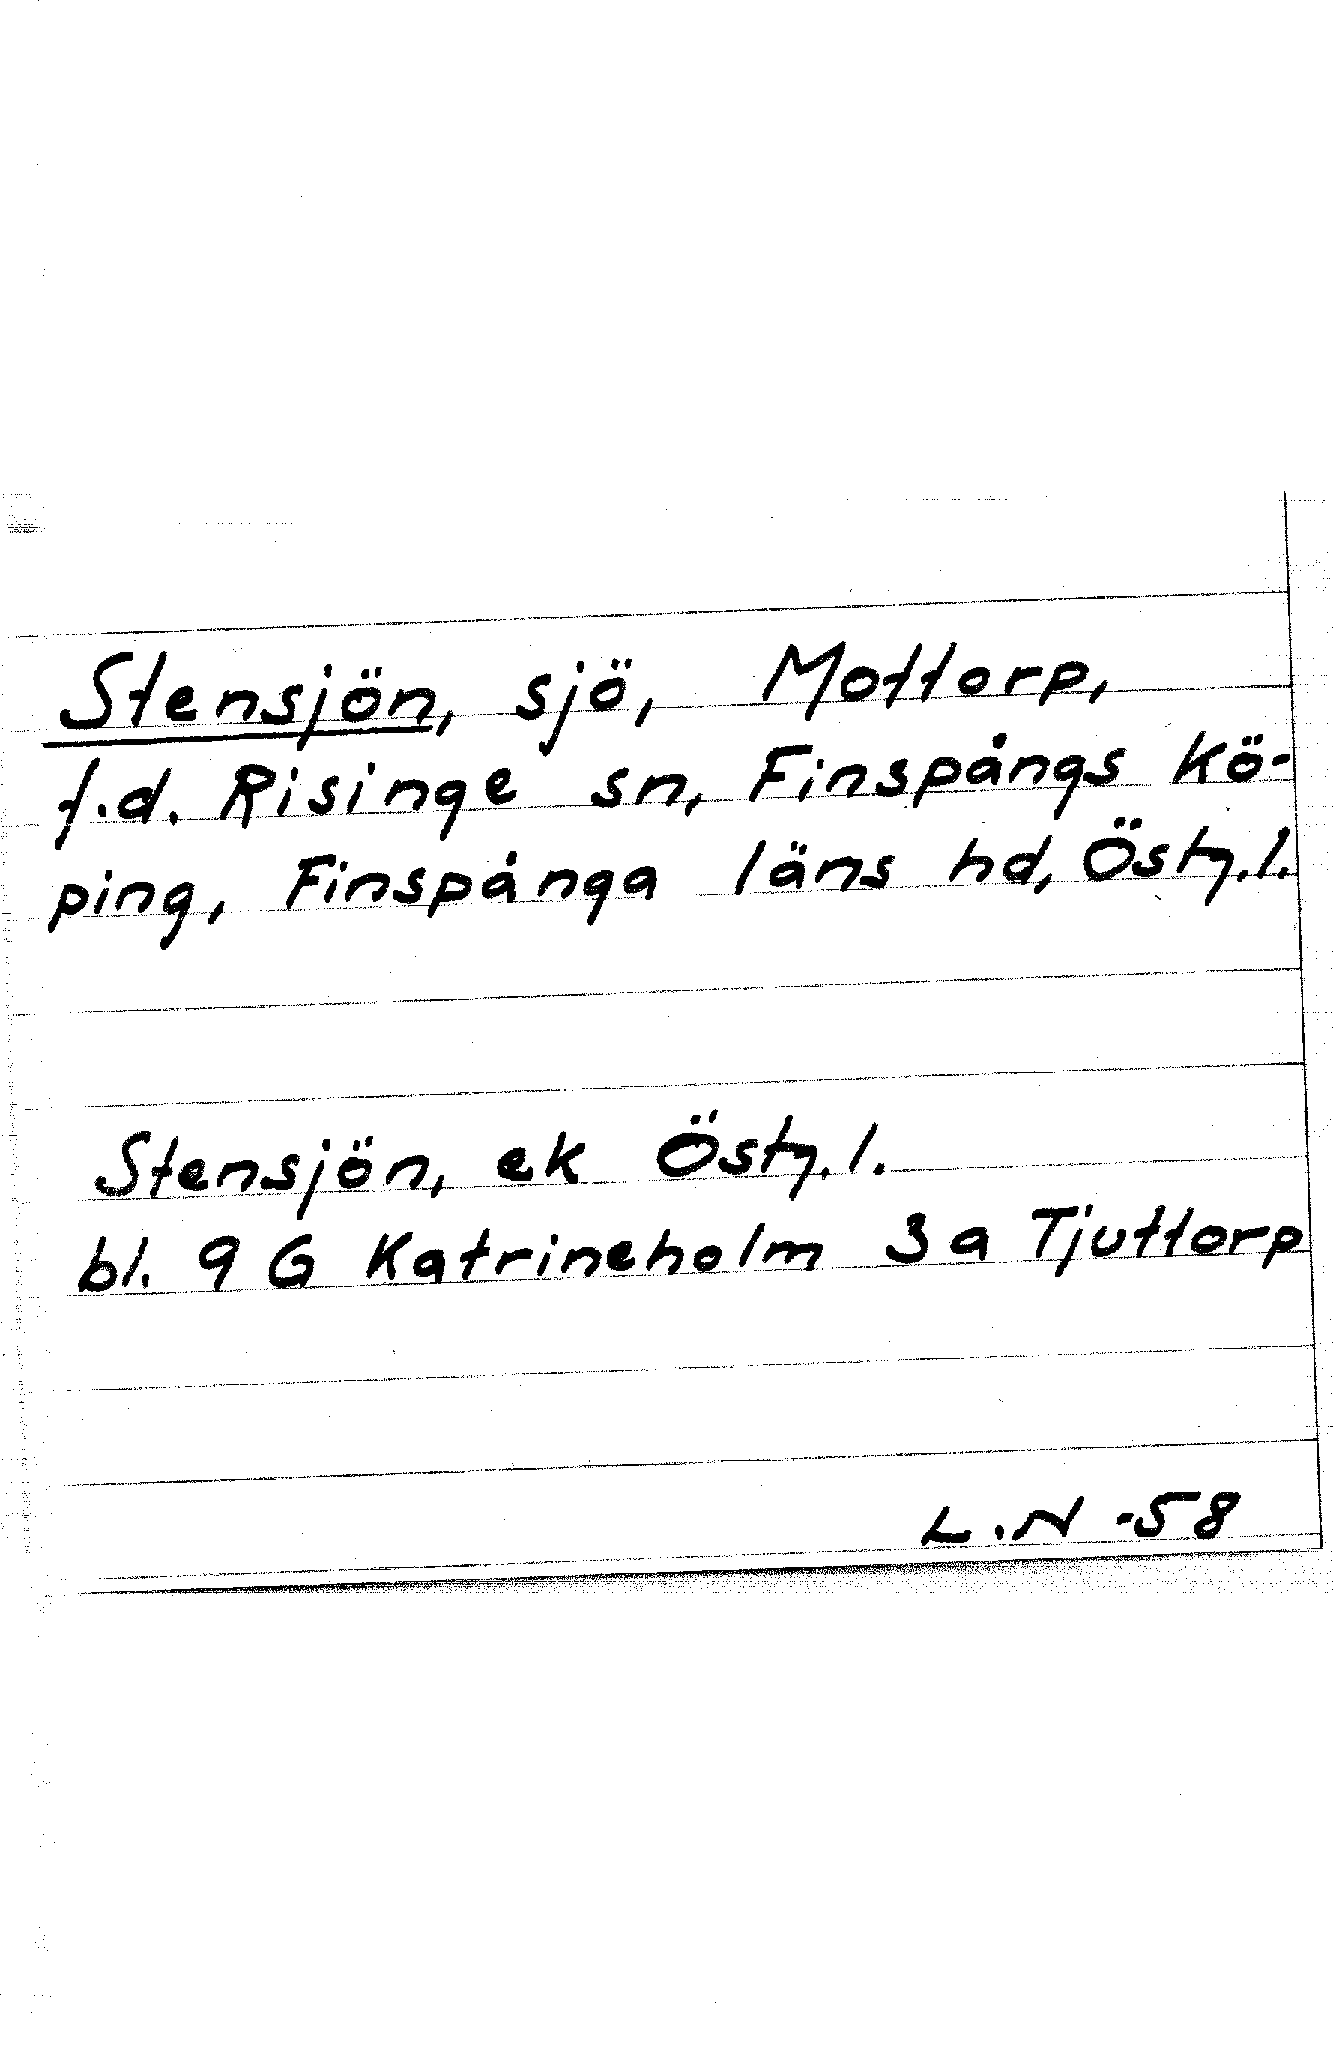 Stensjön, sjö, Mottorp,
f.d. Risinge sn, Finspångs kö-
ping, Finspånga läns hd, Östg.l.
Stensjön, ek Östg.l.
bl. 9 G Katrineholm 3 a Tjuttorp
L.N -58